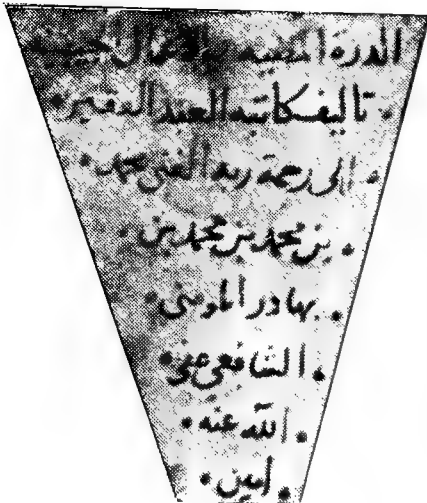 الدرة المضيه
تاليف كاتبه العبد الفقير
الى رحمة ربه الغنى محمد
بن محمد بن محمد بن
بهادر المومنى
الشافعى عفى
الله عنه
امين